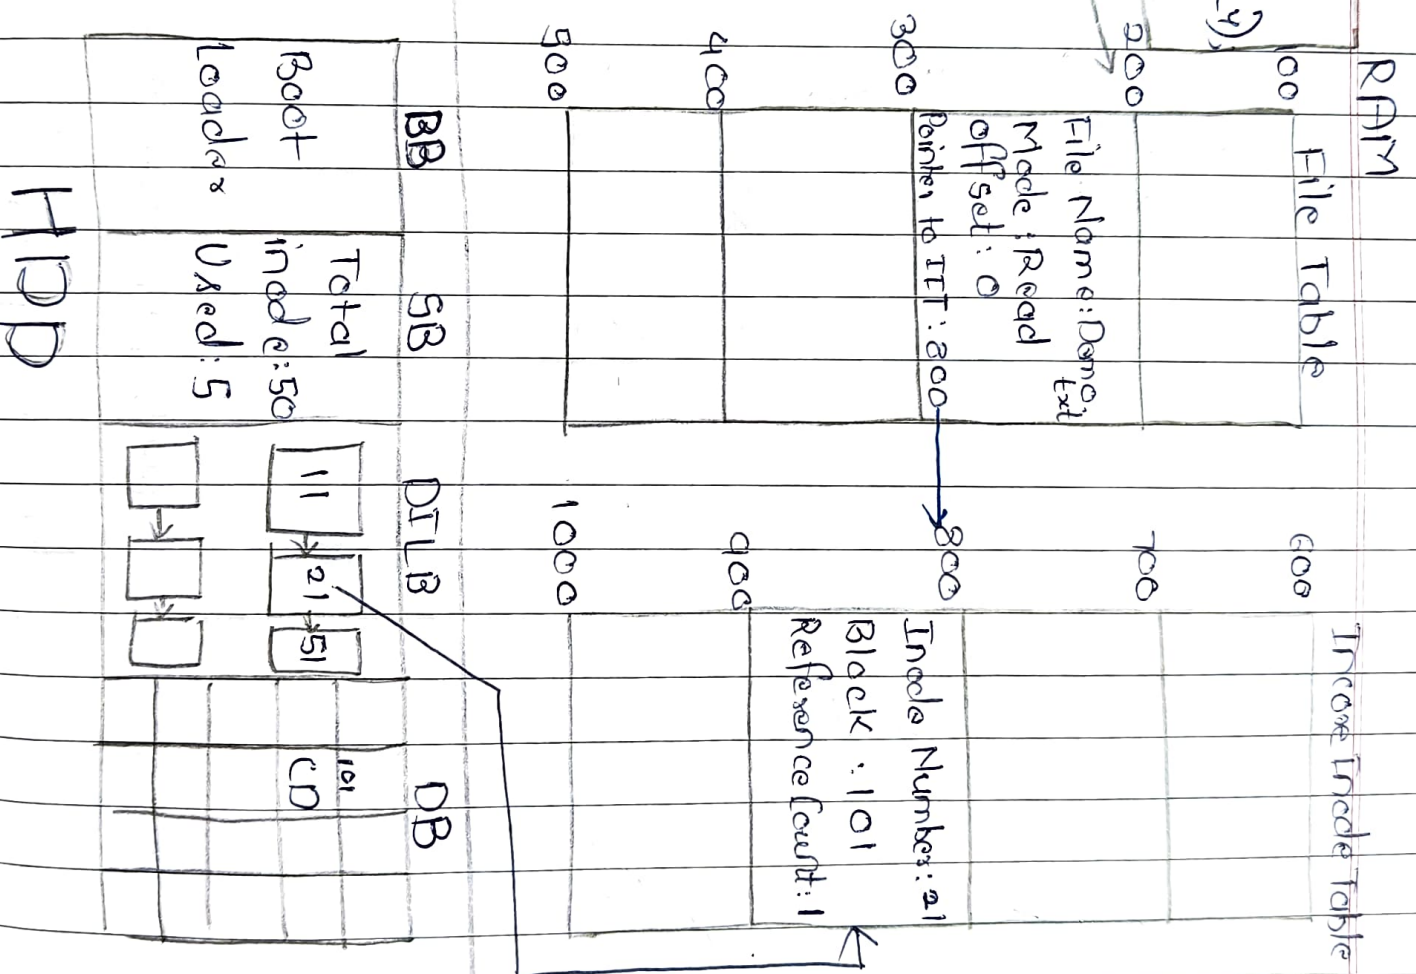 -4),
RAM
File Table
Incore Inode Table
100
200
300
400
500
File Name: Demo.
txt
Mode: Read
offset: 0
Pointer to IIT: 800
600
700
800
900
1000
Inode Number: 21
Block: 101
Reference Count: 1
BB
SB
DILB
DB
Boot
Loader
Total
inode: 50
Used: 5
11
21
51
101
CD
HDD